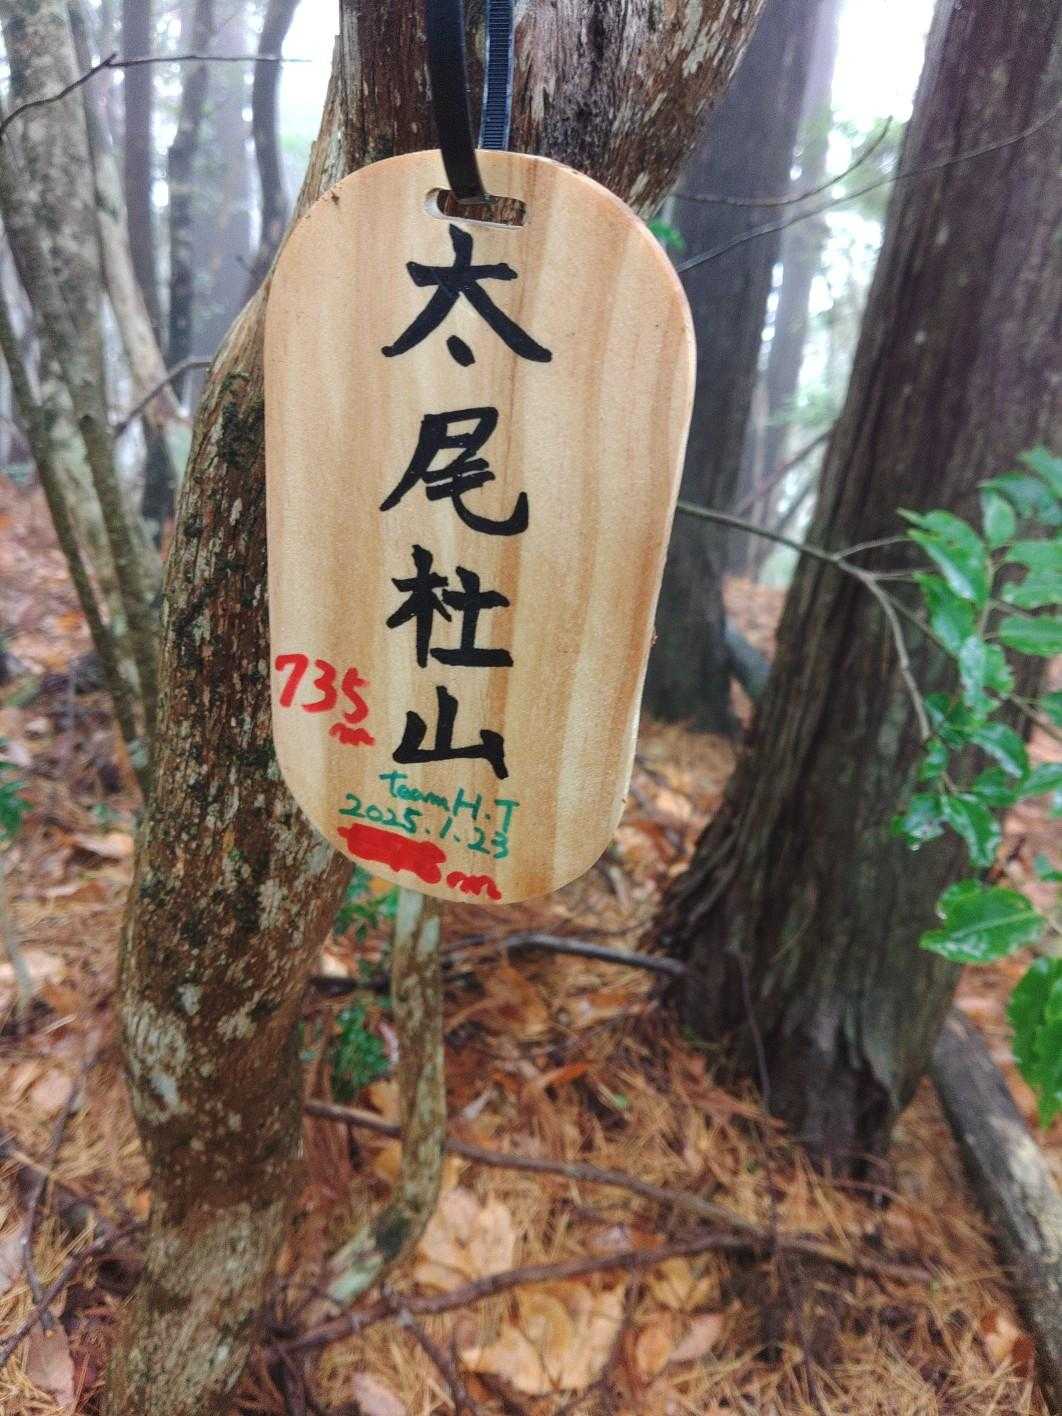 太尾杜山
735m
team H.T
2025.1.23